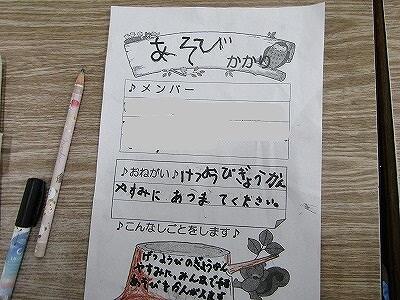 あそび かかり
♪メンバー
♪おねがい♪げつようびぎょうかん
やすみに あつまてください。
♪こんなしごとをします♪
げつようびのぎょうかん
やすみに、みんなで
あそびを